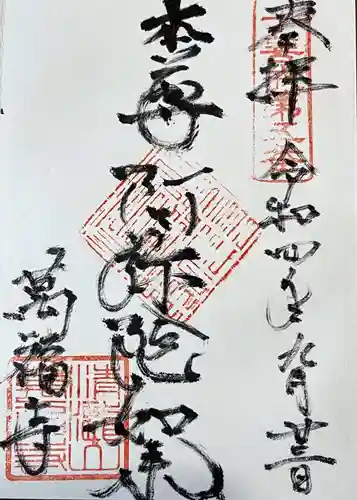 奉拝 令和四年九月廿三日
本尊阿弥陀如来
萬福寺